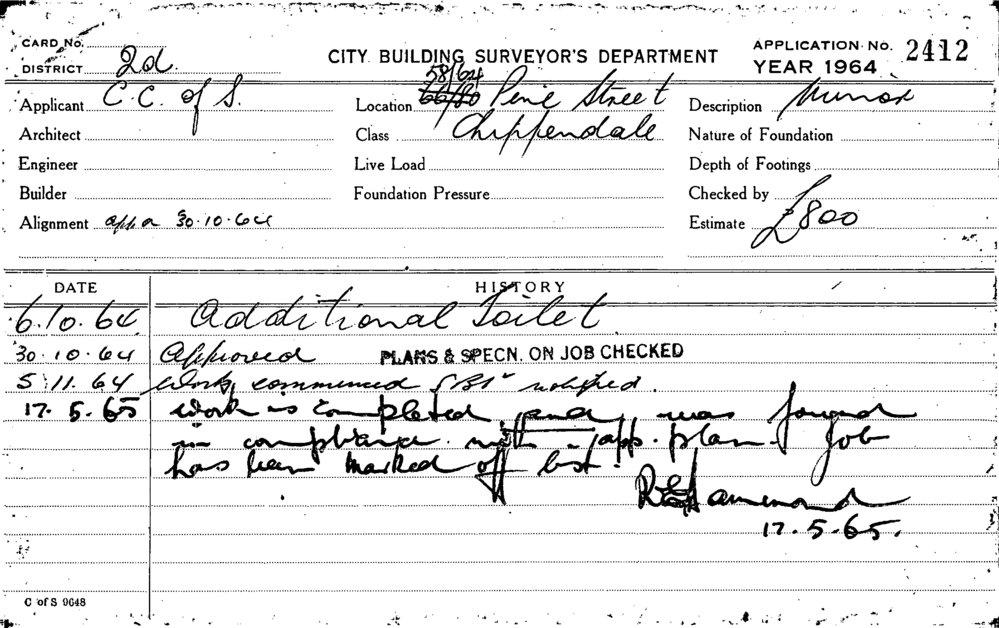 CARD No.
DISTRICT 2d.
CITY BUILDING SURVEYOR'S DEPARTMENT
APPLICATION No. 2412
YEAR 1964
Applicant C. C. of S.
Location 66/80 58/64 Pine Street
Description Minor
Architect
Class Chippendale
Nature of Foundation
Engineer
Live Load
Depth of Footings
Builder
Foundation Pressure
Checked by
Alignment 30.10.64
Estimate £800
DATE HISTORY
6.10.64 Additional Toilet
30.10.64 Approved PLANS & SPECN. ON JOB CHECKED
5.11.64 Work commenced notified.
17.5.65 Work is completed and was found
in compliance with app. plan. Job
has been marked off list.
Hammond
17.5.65.
C of S 9648